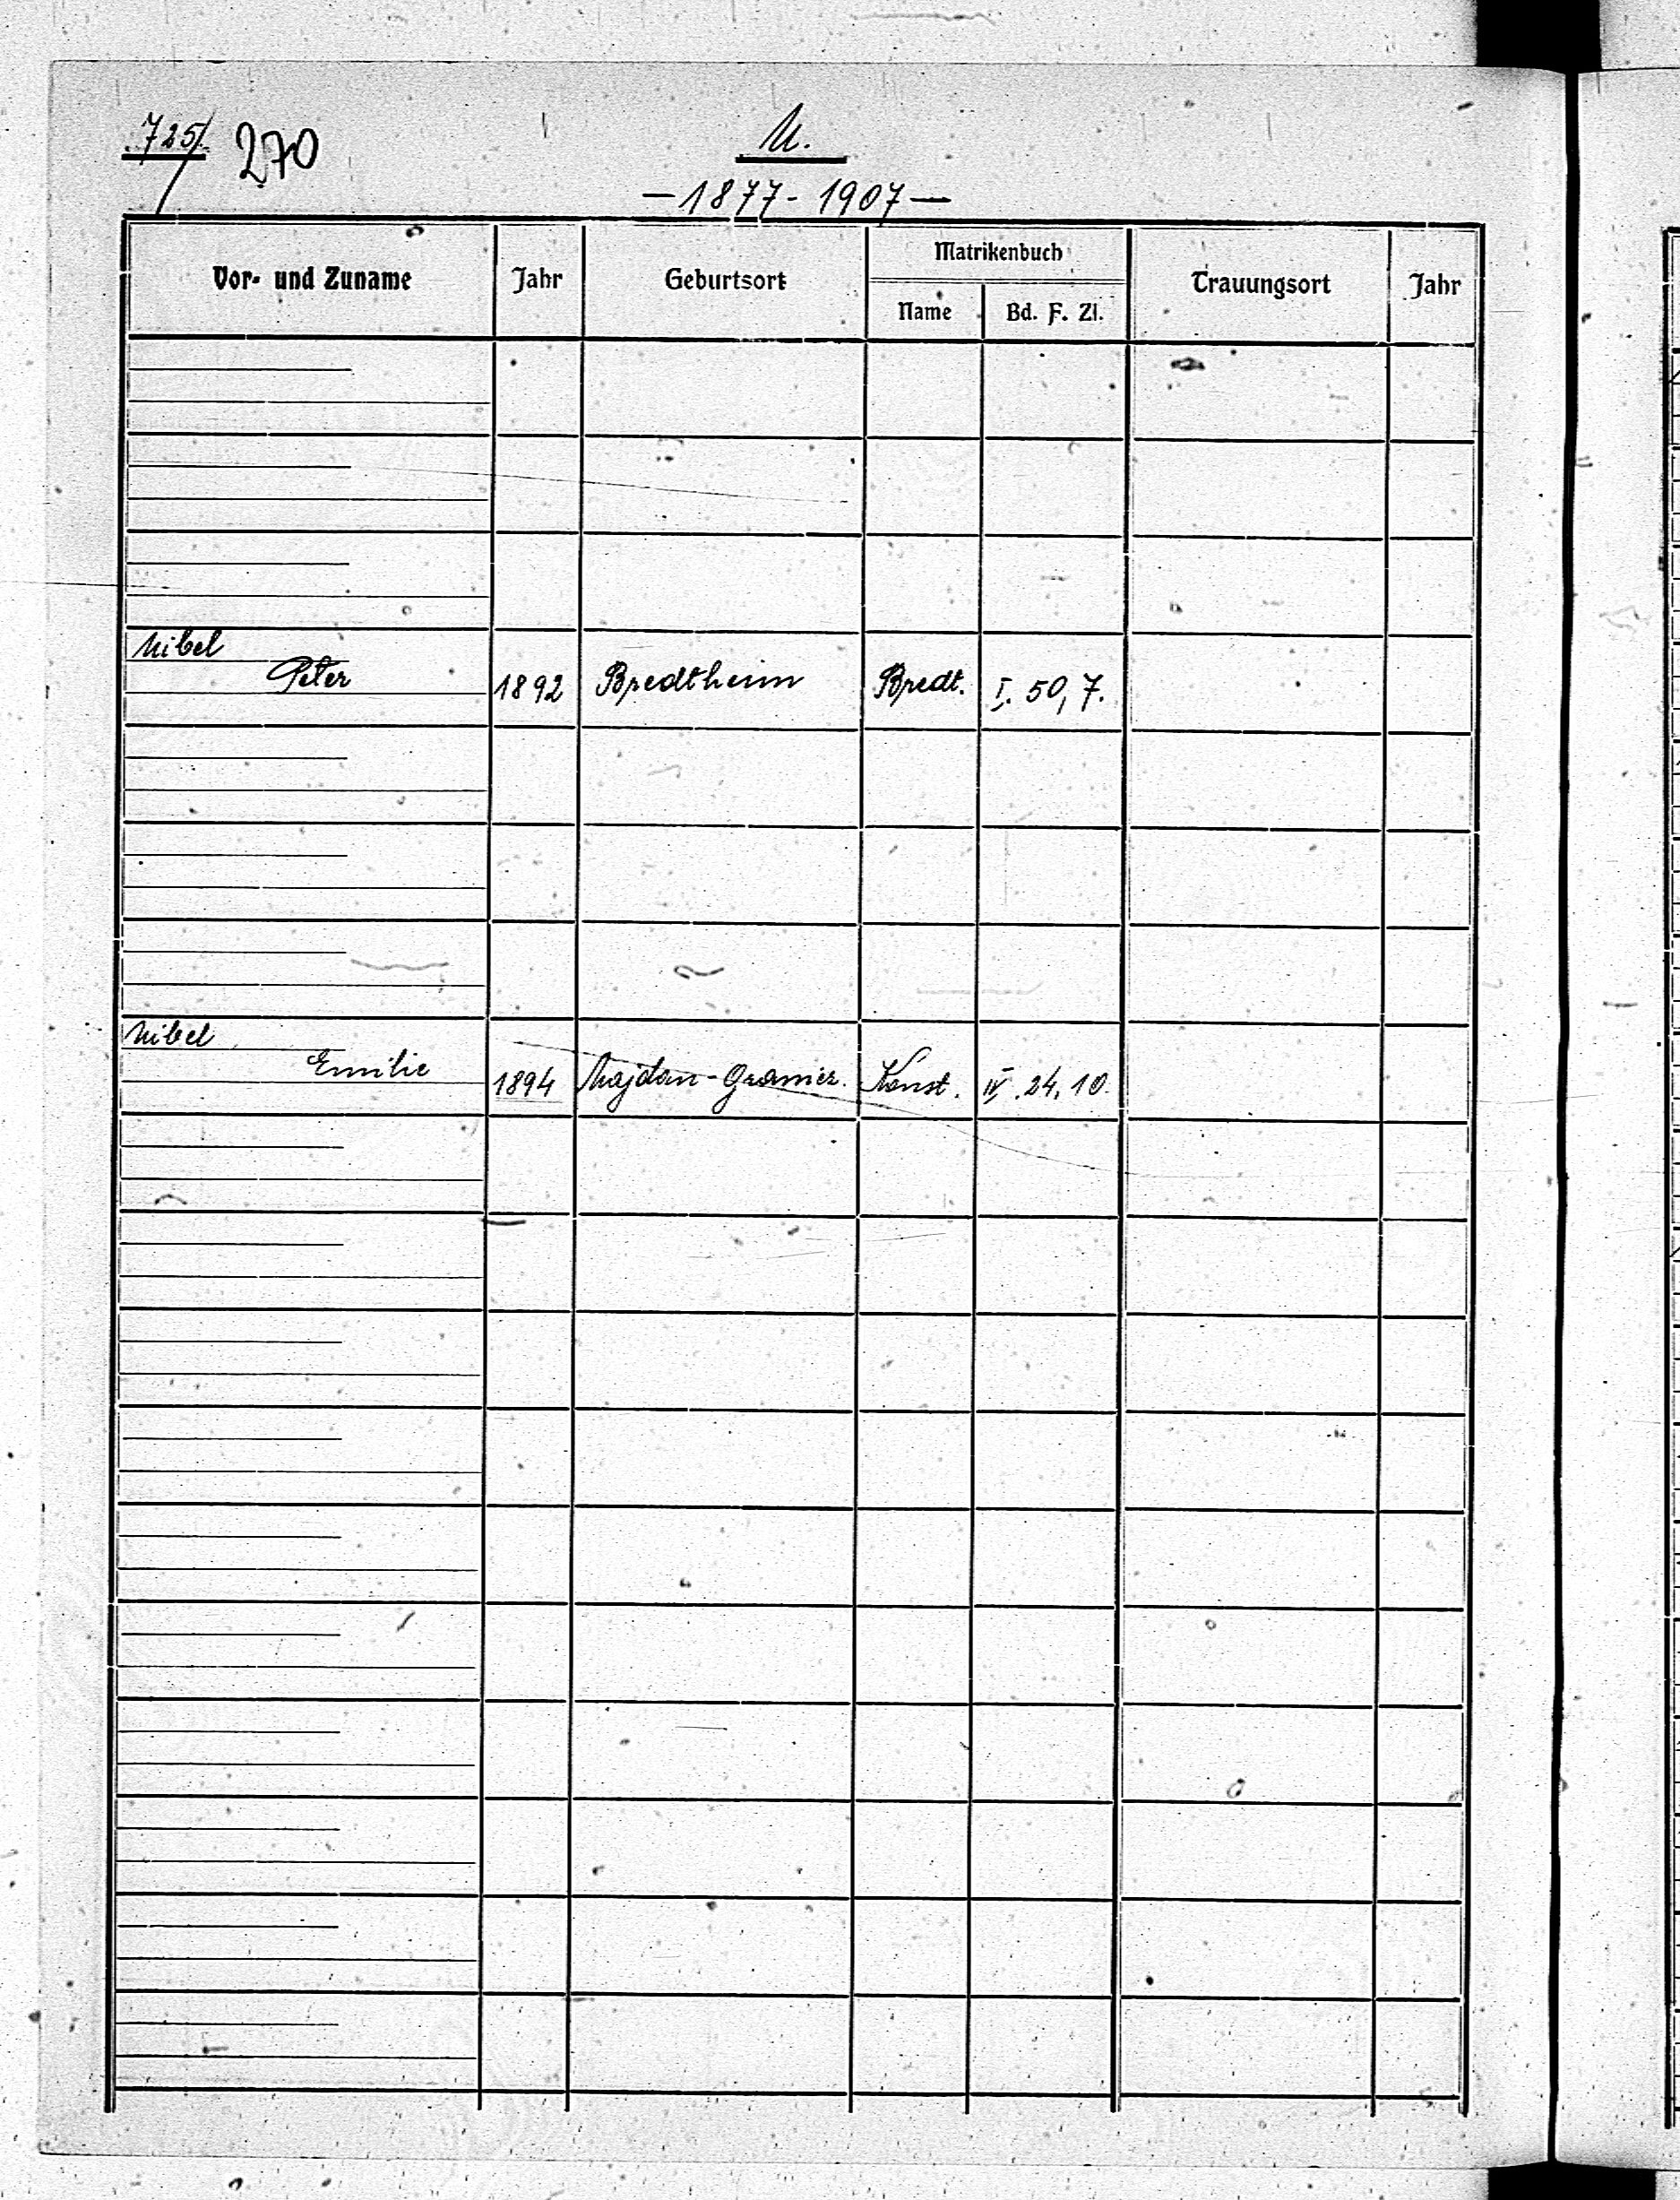 725/. 270 U.
- 1877 - 1907 -
Vor- und Zuname Jahr Geburtsort Matrikenbuch Trauungsort Jahr
Name Bd. F. Zl.
Uibel
Peter 1892 Bredtheim Bredt. I. 50, 7.
Uibel
Emilie 1894 Majdan-Granicz. Konst. IV. 24, 10.